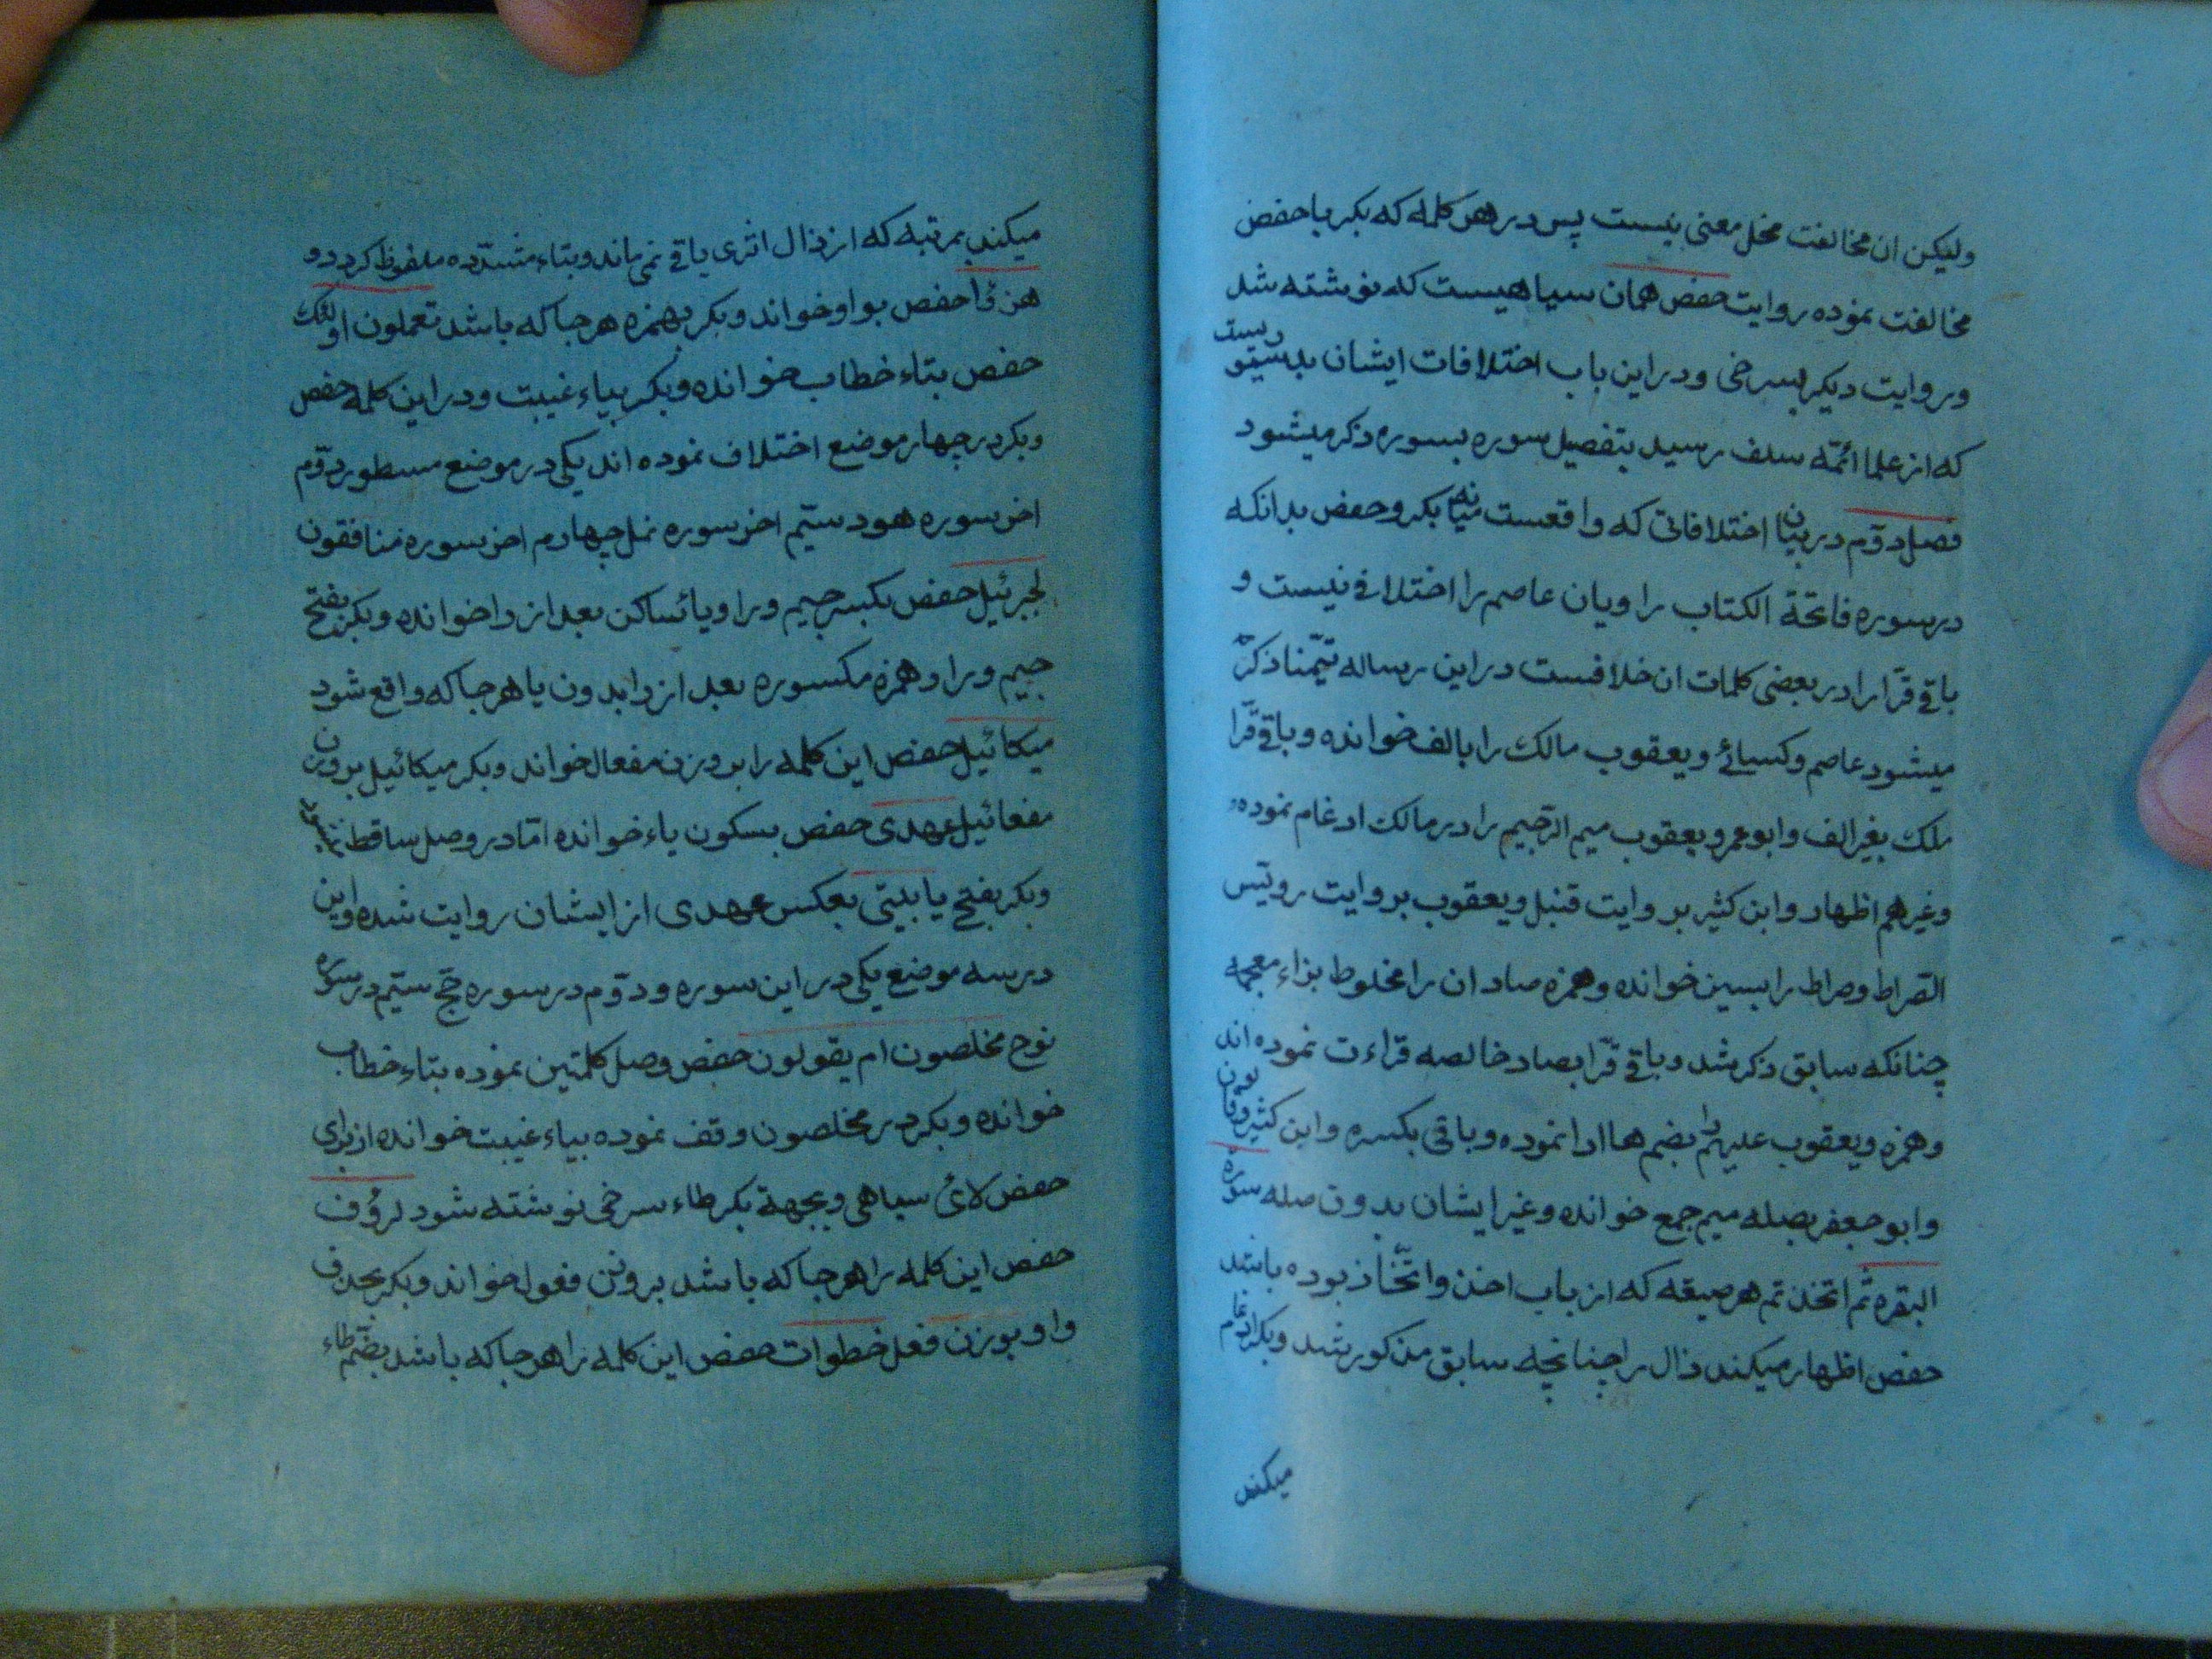 ولیکن ان مخالفت مخل معنی نیست پس در هر کلمه که بکر با حفض
مخالفت نموده روایت حفض همان سیاهیست که نوشته شد
وروایت دیکر بسرخی ودر این باب اختلافات ایشان بدستیو
که از علما ائمّه سلف رسید بتفصیل سوره بسوره ذکر میشود
فصل دوّم در بیان اختلافاتی که واقعست میانه بکر و حفض بدانکه
در سوره فاتحة الکتاب راویان عاصم را اختلافی نیست و
باقی قرّا را در بعضی کلمات ان خلافست در این رساله تیمّنا ذکر
میشود عاصم وکسائی ویعقوب مالک را بالف خوانده وباقی قرّا
ملک بغیر الف وابوعمرو یعقوب میم الرّحیم را در مالک ادغام نموده
وغیرهم اظهار وابن کثیر بروایت قنبل ویعقوب بروایت رویس
الصّراط وصراط را بسین خوانده وهمزه صاد ان را مخلوط بزاء معجمه
چنانکه سابق ذکر شد وباقی قرّا بصاد خالصه قرّاءت نموده اند
وهمزه ویعقوب علیهم را بضم ها ادا نموده وباقی بکسره وابن کثیر
وابوجعفر بصله میم جمع خوانده وغیر ایشان بدون صله سوره
البقره ثم اتخذتم هر صیغه که از باب اخذ واتّخاذ بوده باشد
حفض اظهار میکند ذال را چنانچه سابق مذکور شد وبکر ادغام
میکند
میکند بمرتبه که از ذال اثری باقی نمی ماند وبتاء مشدّده ملفوظ کردد و
هزؤا حفض بواو خواند وبکر بهمزه هر جا که باشد تعملون اولئک
حفض بتاء خطاب خوانده وبکر بیاء غیبت ودر این کلمه حفض
وبکر در چهار موضع اختلاف نموده اند یکی در موضع مسطور دوّم
اخر سوره هود سیّم اخر سوره نمل چهارم اخر سوره منافقون
لجبرئیل حفض بکسر جیم ورا ویا ئساکن بعد از را خوانده وبکر بفتح
جیم ورا وهمزه مکسوره بعد از را بدون یا هر جا که واقع شود
میکائیل حفض این کلمه را بر وزن مفعال خواند وبکر میکائیل بر وزن
مفعائیل عهدی حفض بسکون یاء خوانده امّا در وصل ساقط
وبکر بفتح یا بیتی بعکس عهدی از ایشان روایت شده واین
در سه موضع یکی در این سوره ودوّم در سوره حجّ سیّم در سوره
نوح مخلصون ام یقولون حفض وصل کلمتین نموده بتاء خطاب
خوانده وبکر در مخلصون وقف نموده بیاء غیبت خوانده از برای
حفض لائ سیاهی وبجهة بکر طاء سرخی نوشته شود لرؤف
حفض این کلمه را هر جا که باشد بر وزن فعول خواند وبکر بحذف
واو بوزن فعل خطوات حفض این کلمه را هر جا که باشد بضّم طاء